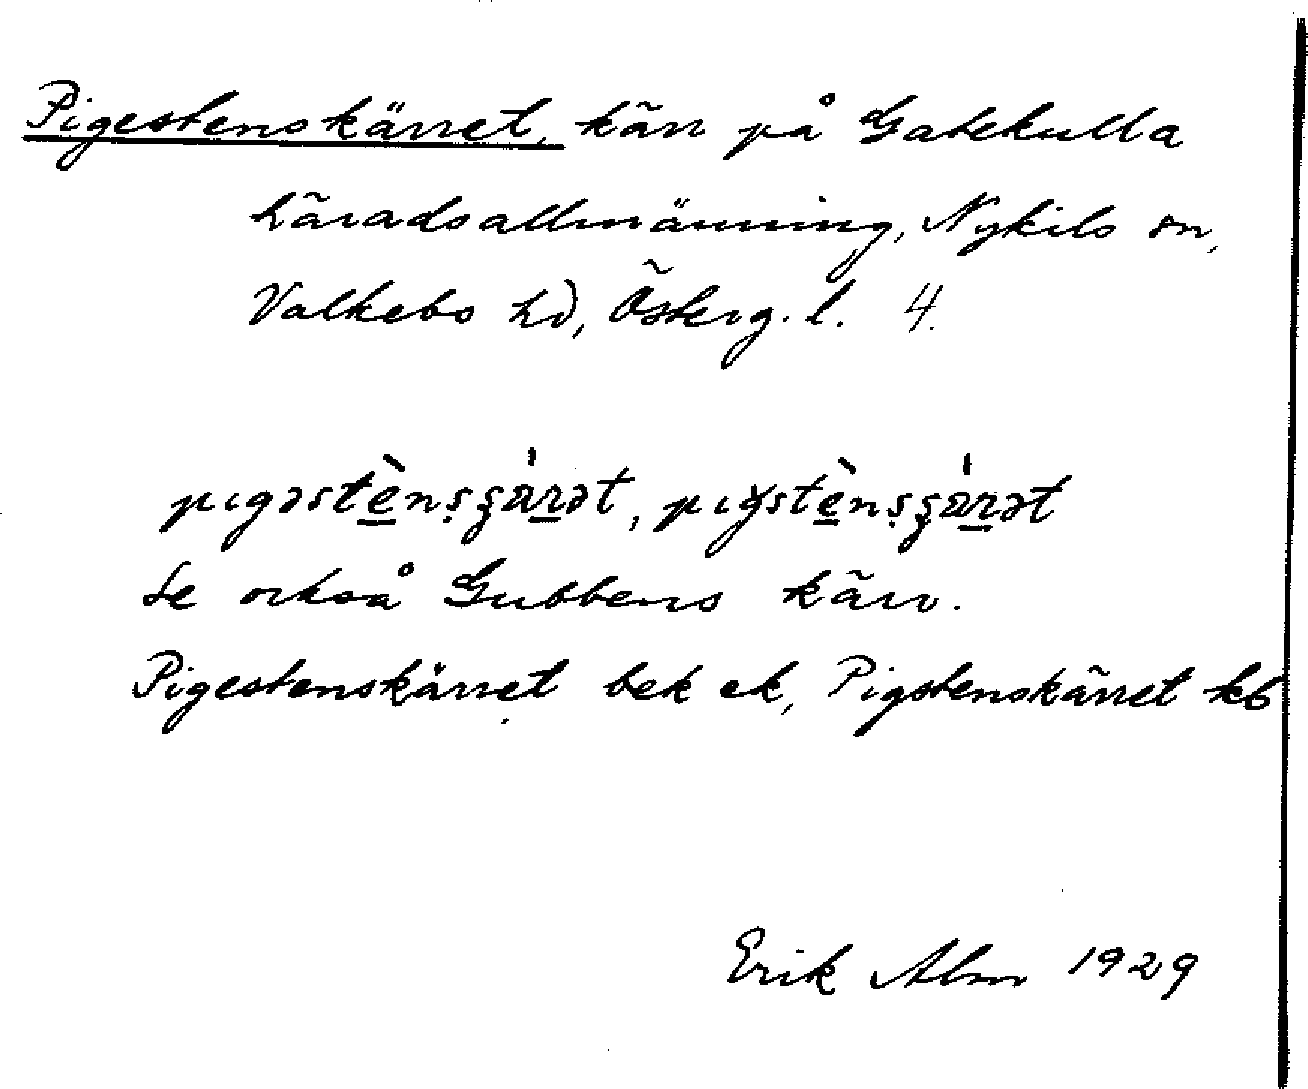 Pigestenskärret, kärr på Gatekulla
häradsallmänning, Nykils sn,
Valkebo hd, Österg. l. 4.
pıgəstènşşárət, pıgstènşşárət
Se också Gubbens kärr.
Pigestenskärret bek ek, Pigstenskärret kb
Erik Alm 1929